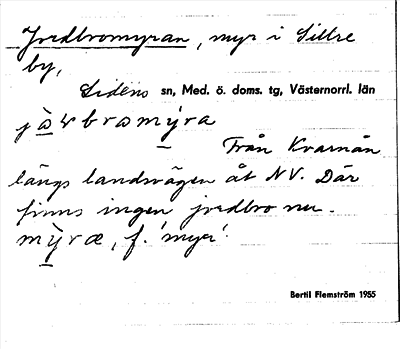 Jordbromyran, myr i Sillre
by,
Lidens sn, Med. ö. doms. tg, Västernorrl. län
Från Kvarnån
längs landsvägen åt NV. Där
finns ingen jordbro nu.
mỳræ, f. 'myr'.
Bertil Flemström 1955